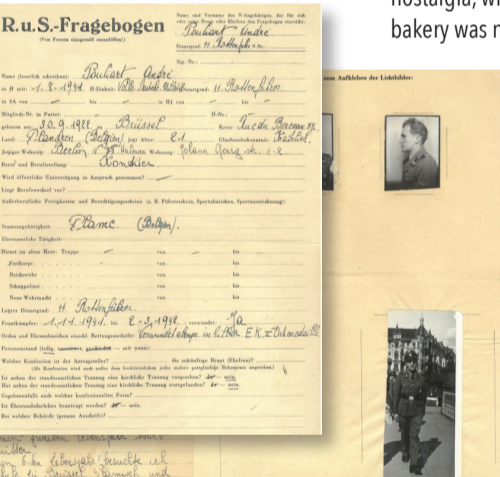 nostalgia, w
bakery was n
R.u.S.-Fragebogen
(Von Frauen sinngemäß auszufüllen!)
Name und Vorname des SS-Angehörigen, der für sich
oder seine Braut oder Ehefrau den Fragebogen einreicht:
Pouliart André
Dienstgrad: SS Rottenfhr. SS-Nr.
Sip.-Nr.
Name (leserlich schreiben): Pouliart André
in SS seit 1.8.1941. SS-Einheit: Dienstgrad: SS Rottenführer.
in SA von — bis — in HJ von — bis
Mitglieds-Nr. in Partei: — SS-Nr.:
geboren am 30.9.1922. zu Brüssel Kreis: Rue du Berceau 37.
Land: Flandren (Belgien) jetzt Alter: 21 Glaubensbekenntnis:
Jetziger Wohnsitz: Berlin Wohnung: Johann Georg str.
Beruf und Berufsstellung: Konditor
Wird öffentliche Unterstützung in Anspruch genommen? —
Liegt Berufswechsel vor?
Außerberufliche Fertigkeiten und Berechtigungsscheine (z. B. Führerschein, Sportabzeichen, Sportauszeichnung):
Staatsangehörigkeit: Flame. (Belgien).
Ehrenamtliche Tätigkeit:
Dienst im alten Heer: Truppe — von — bis —
Freikorps von bis
Reichswehr von bis
Schutzpolizei von bis
Neue Wehrmacht von bis
Letzter Dienstgrad: SS Rottenführer.
Frontkämpfer: 1.11.1941. bis 2-3.1942. verwundet: Ja
Orden und Ehrenabzeichen einschl. Rettungsmedaille: in silber EK II Ostmedaille
Personenstand (ledig, verwitwet, geschieden — seit wann):
Welcher Konfession ist der Antragsteller? die zukünftige Braut (Ehefrau)?
(Als Konfession wird auch außer dem herkömmlichen jedes andere gottgläubige Bekenntnis angesehen.)
Ist neben der standesamtlichen Trauung eine kirchliche Trauung vorgesehen? Ja — nein.
Hat neben der standesamtlichen Trauung eine kirchliche Trauung stattgefunden? Ja — nein.
Gegebenenfalls nach welcher konfessionellen Form?
Ist Ehestandsdarlehen beantragt worden? Ja — nein.
Bei welcher Behörde (genaue Anschrift)?
zum Aufkleben der Lichtbilder:
besuchte ich